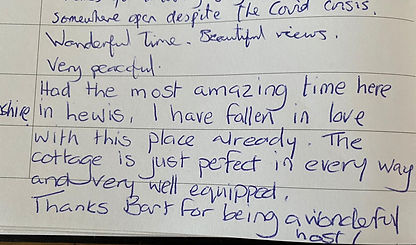 somewhere open despite the Covid crisis.
Wonderful Time. Beautiful views.
Very peaceful.
Had the most amazing time here
shire in hewis, I have fallen in love
with this place already. The
cottage is just perfect in every way
and very well equipped.
Thanks Bart for being a wonderful
host!